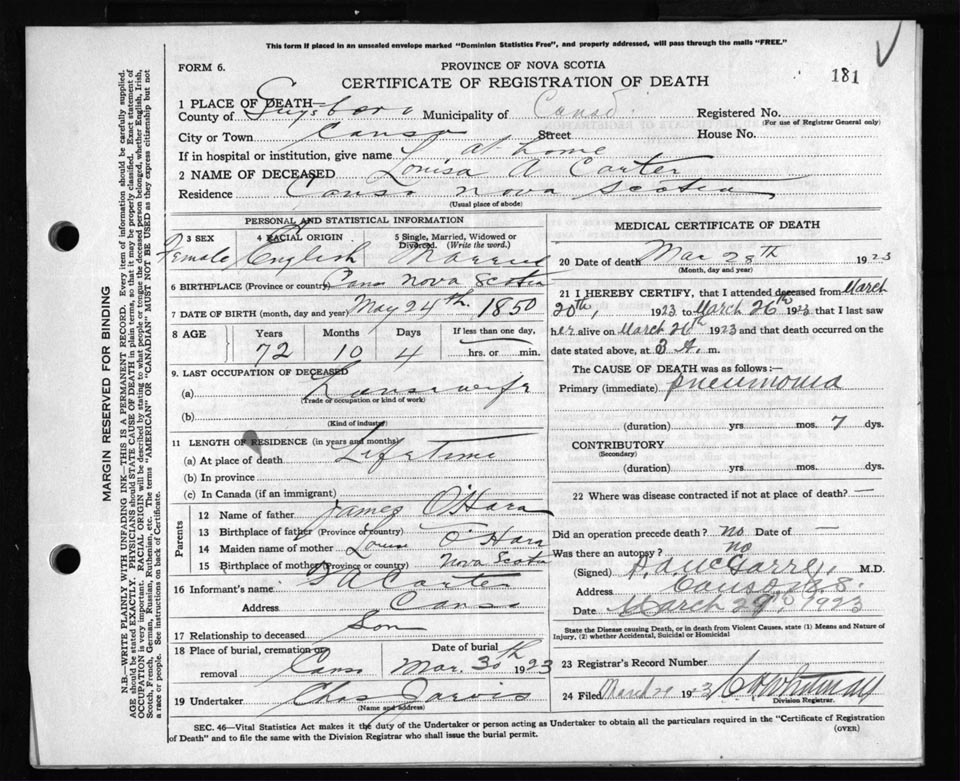 This form if placed in an unsealed envelope marked "Dominion Statistics Free", and properly addressed, will pass through the mails "FREE."
FORM 6.
PROVINCE OF NOVA SCOTIA
CERTIFICATE OF REGISTRATION OF DEATH
181
1 PLACE OF DEATH—
County of Guysboro Municipality of Canso Registered No.
(For use of Registrar General only)
City or Town Canso Street House No.
If in hospital or institution, give name At home
2 NAME OF DECEASED Louisa A Carter
Residence Canso Nova Scotia
(Usual place of abode)
PERSONAL AND STATISTICAL INFORMATION
3 SEX 4 RACIAL ORIGIN 5 Single, Married, Widowed or Divorced. (Write the word.)
Female English Married
6 BIRTHPLACE (Province or country) Canso Nova Scotia
7 DATE OF BIRTH (month, day and year) May 24th. 1850
8 AGE Years Months Days If less than one day,
72 10 4 hrs. or min.
9. LAST OCCUPATION OF DECEASED
(a) Housewife
(Trade or occupation or kind of work)
(b)
(Kind of industry)
11 LENGTH OF RESIDENCE (in years and months)
(a) At place of death Lifetime
(b) In province
(c) In Canada (if an immigrant)
Parents
12 Name of father James O'Hara
13 Birthplace of father (Province or country)
14 Maiden name of mother Louisa O'Hara
15 Birthplace of mother (Province or country) Nova Scotia
16 Informant's name Carter
Address Canso
17 Relationship to deceased Son
18 Place of burial, cremation or removal Date of burial
Canso Mar. 30 1923
19 Undertaker Chas Jarvis
(Name and address)
MEDICAL CERTIFICATE OF DEATH
20 Date of death Mar 28th 1923
(Month, day and year)
21 I HEREBY CERTIFY, that I attended deceased from March
20th, 1923 to March 26th 1923 that I last saw
her alive on March 26th 1923 and that death occurred on the
date stated above, at 3 A. m.
The CAUSE OF DEATH was as follows:—
Primary (immediate) Pneumonia
(duration) yrs. mos. 7 dys.
CONTRIBUTORY
(Secondary)
(duration) yrs. mos. dys.
22 Where was disease contracted if not at place of death? —
Did an operation precede death? no Date of —
Was there an autopsy? no
(Signed) M.D.
Address Canso, N.S.
Date March 29th 1923
State the Disease causing Death, or in death from Violent Causes, state (1) Means and Nature of
Injury, (2) whether Accidental, Suicidal or Homicidal
23 Registrar's Record Number
24 Filed March 1923 Whitman
Division Registrar.
SEC. 46—Vital Statistics Act makes it the duty of the Undertaker or person acting as Undertaker to obtain all the particulars required in the "Certificate of Registration
of Death" and to file the same with the Division Registrar who shall issue the burial permit.
(OVER)
MARGIN RESERVED FOR BINDING
N.B.—WRITE PLAINLY WITH UNFADING INK—THIS IS A PERMANENT RECORD. Every item of information should be carefully supplied.
AGE should be stated EXACTLY. PHYSICIANS should STATE CAUSE OF DEATH in plain terms, so that it may be properly classified. Exact statement of
OCCUPATION is very important. RACIAL ORIGIN will be described by stating to what people or tongue the deceased person belonged, whether English, Irish,
Scotch, French, German, Russian, Ruthenian, etc. The terms "AMERICAN" OR "CANADIAN" MUST NOT BE USED as they express citizenship but not
a race or people. See instructions on back of Certificate.